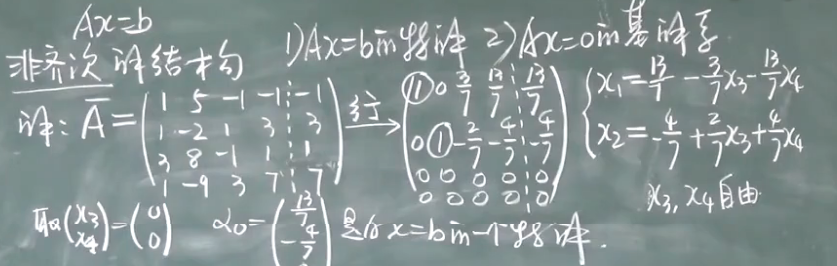 Ax=b
非齐次解结构 1)Ax=b的特解 2)Ax=0的基解系
解: Ā = (1 5 -1 -1 ⋮ -1; 1 -2 1 3 ⋮ 3; 3 8 -1 1 ⋮ 1; 1 -9 3 7 ⋮ 7) 行→ (① 0 3/7 13/7 ⋮ 13/7; 0 ① -2/7 -4/7 ⋮ -4/7; 0 0 0 0 0; 0 0 0 0 0) { x₁=13/7 - 3/7x₃ - 13/7x₄; x₂=-4/7 + 2/7x₃ + 4/7x₄
x₃, x₄自由
取(x₃; x₄)=(0; 0) α₀=(13/7; -4/7; 0 是Ax=b的一个特解.